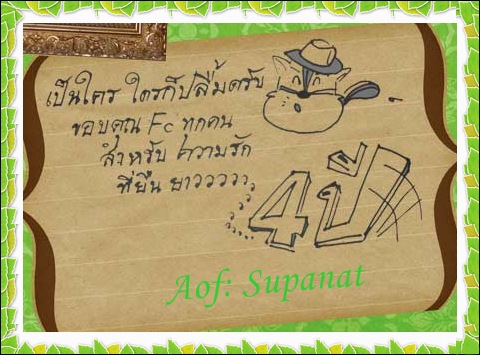 เป็นใคร ใครก็ปลื้มครับ
ขอบคุณ Fc ทุกคน
สำหรับ ความรัก
ที่ยืน ยาววววว
4 ปี
Aof: Supanat